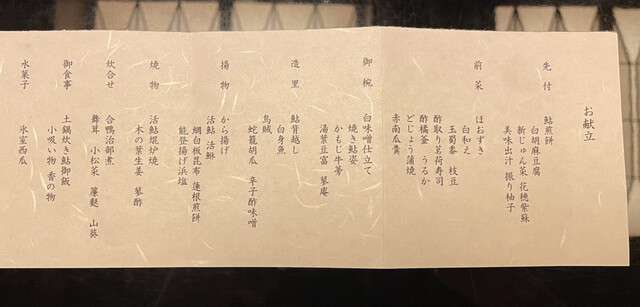 お献立
先付
鮎煎餅
白胡麻豆腐
新じゅん菜 花穂紫蘇
美味出汁 振り柚子
前菜
ほおずき
白和え
玉蜀黍 枝豆
酢取り茗荷寿司
酢橘釜 うるか
どじょう蒲焼
赤南瓜羹
御椀
白味噌仕立て
焼き鮎姿
かもじ牛蒡
湯葉豆富 蓼庵
造里
鮎背越し
白身魚
烏賊
蛇籠胡瓜 辛子酢味噌
揚物
から揚げ
活鮎 活鮴
網白板昆布 蓮根煎餅
能登揚げ浜塩
焼物
活鮎焜炉焼
木の葉生姜 蓼酢
炊合せ
合鴨治部煮
舞茸 小松菜 簾麩 山葵
御食事
土鍋炊き鮎御飯
小吸い物 香の物
水菓子
氷室西瓜